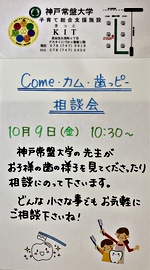 神戸常盤大学
子育て総合支援施設
きっと
KIT
Come・カム・歯ッピー
相談会
10月9日(金) 10:30～
神戸常盤大学の先生が
お子様の歯の様子を見てくださったり
相談にのって下さいます。
どんな小さな事でもお気軽に
ご相談下さいね!